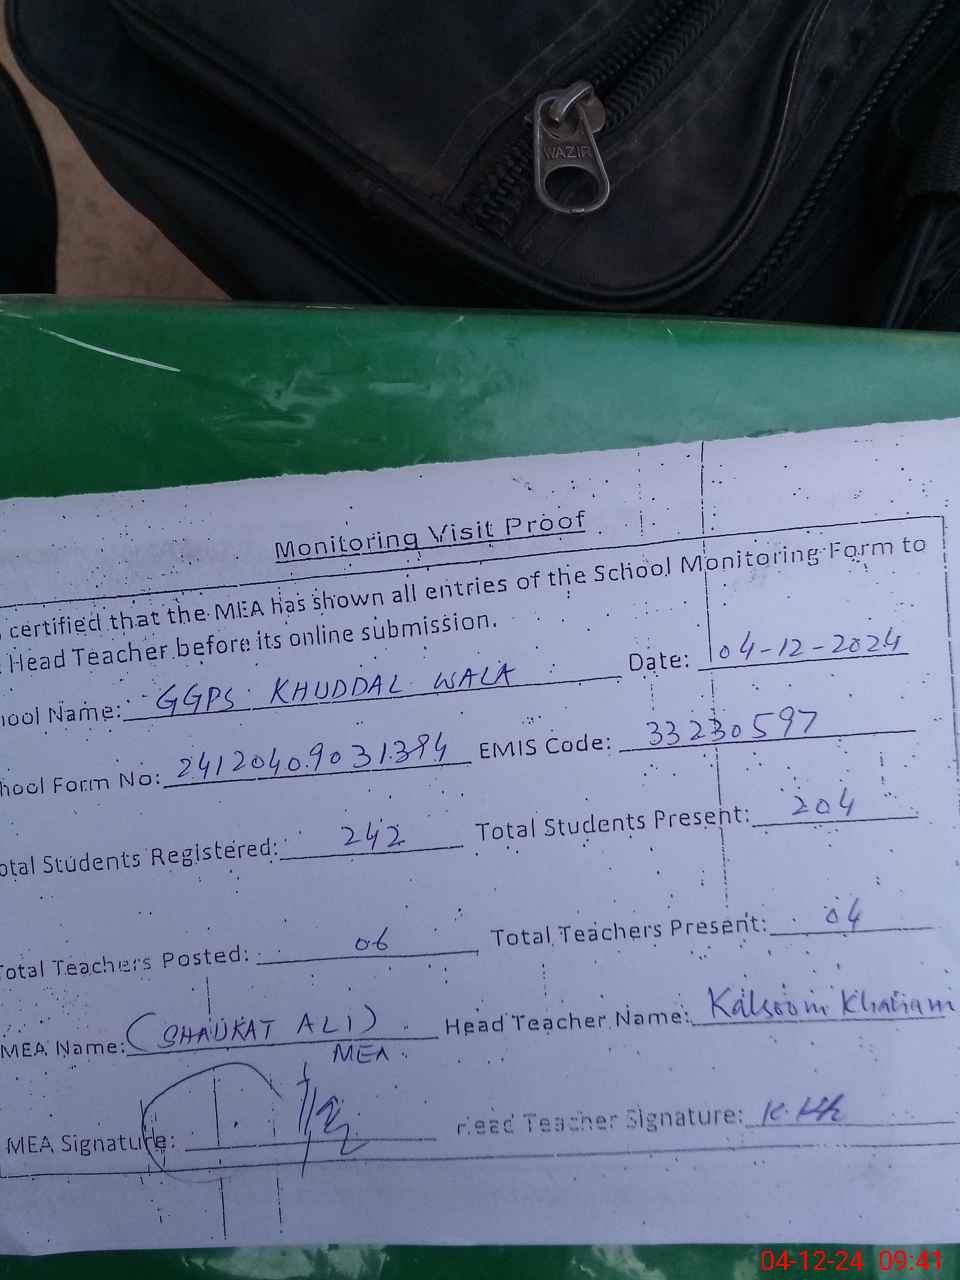 WAZIR
Monitoring Visit Proof
certified that the MEA has shown all entries of the School Monitoring Form to
Head Teacher before its online submission.
hool Name: GGPS KHUDDAL WALA Date: 04-12-2024
hool Form No: 2412040.9031.394 EMIS Code: 33230597
otal Students Registered: 242 Total Students Present: 204
Total Teachers Posted: 06 Total Teachers Present: 04
MEA Name: (SHAUKAT ALI) Head Teacher Name: Kalsoom Khanam
MEA
MEA Signature: Head Teacher Signature: K.Kh
04-12-24 09:41